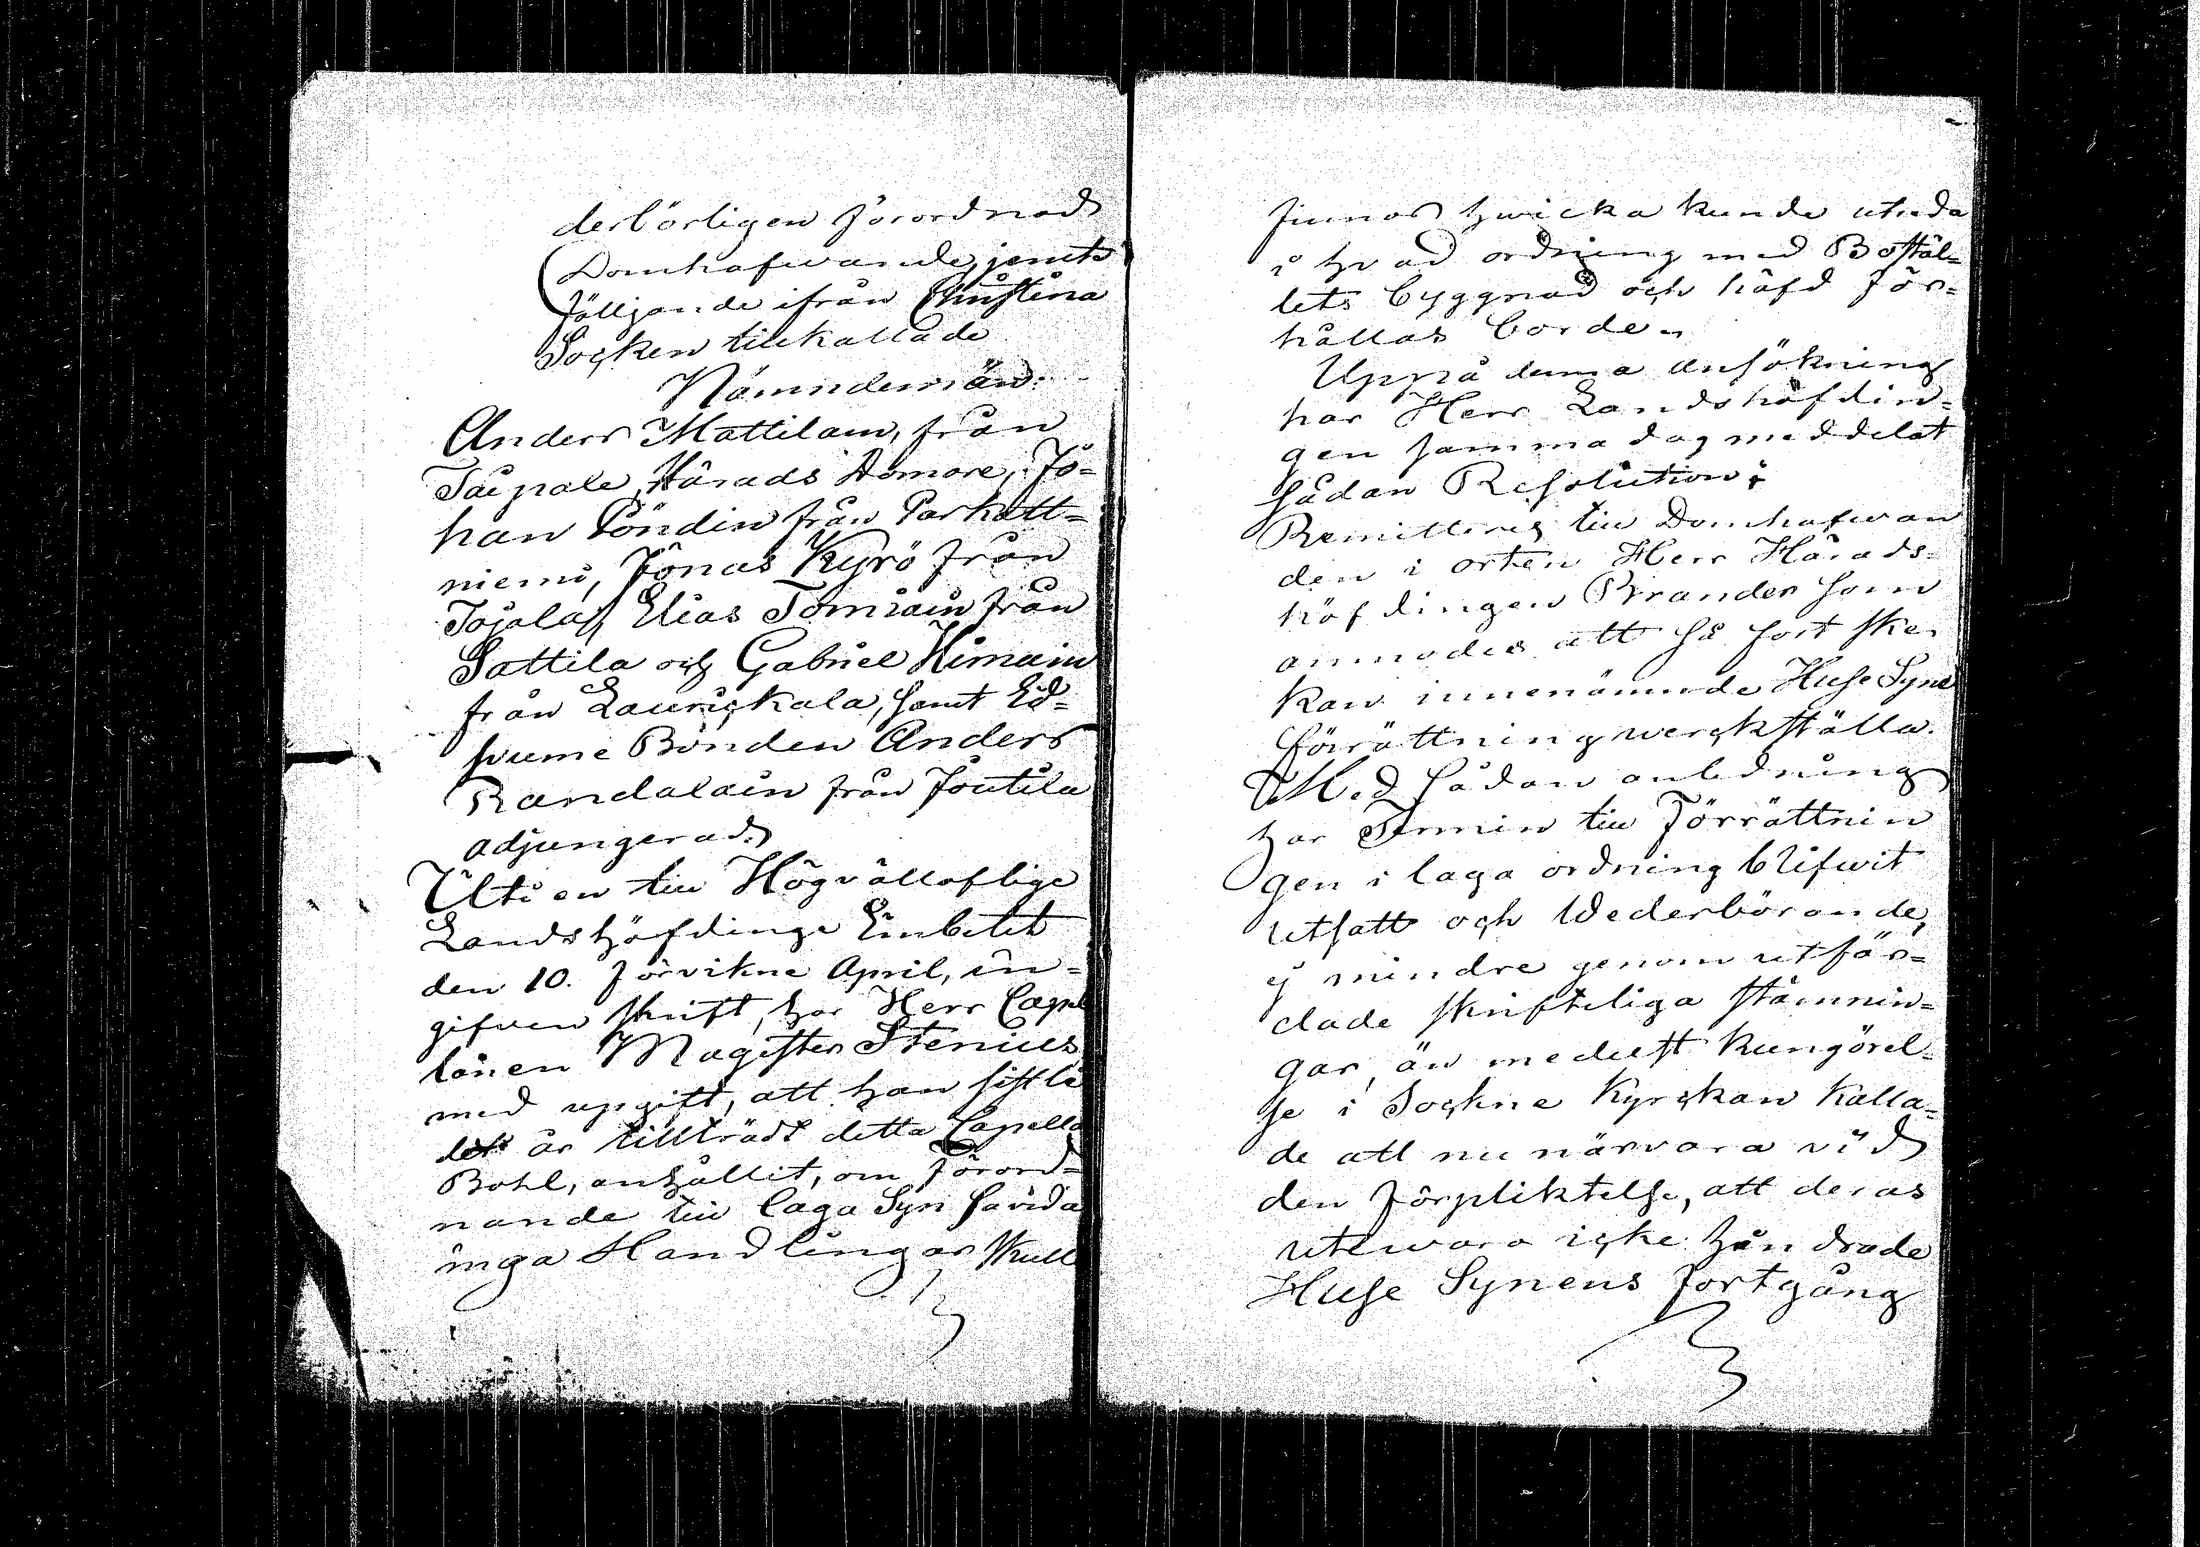 derbörligen förordnad
Domhafwande, jemte
följjande ifrån Christina
Socken tillkallade
Nämndemän:
Anders Mattilain, från
Taipale, Härads Domare, Jo-
han Pöndin från Parkatt-
niemi, Jonas Kyrö från
Elias Tomiain från
Sattila och Gabriel Kimain
från Laurickala, samt Ed-
svurne Bonden Anders
Randalain från Joutila
adjungerad.
Uti en till Högvälloflige
Landshöfdinge Embetet
den 10. förvikne April, in-
gifwen skrift, har Herr Capel-
lanen Magister Stenius
med upgift, att han sistle-
det år tillträdt detta Capella
Bohl, anhållit, om förord-
nande till laga Syn såvida
inga Handlingar skull
finnas hwicka kunde utreda
i hvad ordning med Boställ-
lets byggnad och häfd för-
hållas borde.
Uppå denna ansökning
har Herr Landshöfdin-
gen samma dag meddelat
sådan Resolution:
Remitteres till Domhafwan
den i orten Herr Härads-
höfdingen Brander som
anmodes att så fort ske
kan innenämnde Huse Syns
förrättning werckställa.
Med sådan anledning
har Termin till Förrättnin
gen i laga ordning blifwit
utsatt och Wederbörande,
ej mindre genom utfär-
dade skrifteliga stämnin-
gar, än medelst kungörel-
se i Sockne Kyrckan kalla-
de att nu närvara vid
den förpliktelse, att deras
utewara icke hindrade
Huse Synens fortgång